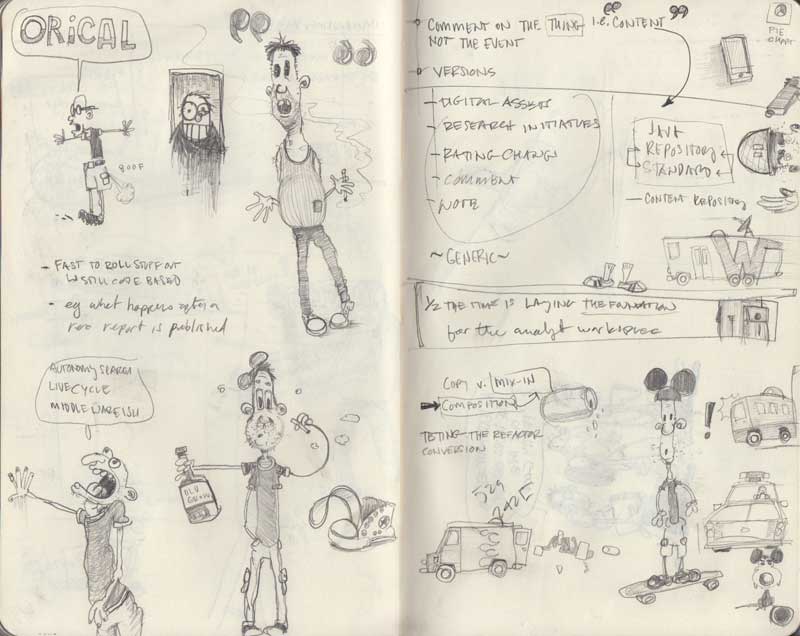 ORICAL
800F
- FAST TO ROLL STUFF OUT
W STILL CODE BASED
- eg what happens after a
report is published
AUTONOMY SEARCH
LIVECYCLE
MIDDLEWARE ISH
OLD
CROW
COMMENT ON THE THING i.e. "CONTENT"
NOT THE EVENT
VERSIONS
- DIGITAL ASSETS
- RESEARCH INITIATIVES
- RATING CHANGE
- COMMENT
- NOTE
~GENERIC~
PIE
CHART
JAVA
REPOSITORY
STANDARD
- CONTENT REPOSITORY
W
1/2 THE TIME IS LAYING THE FOUNDATION
for the analyst workspace
COPY V. / MIX-IN
COMPOSITION
TESTING THE REFACTOR
CONVERSION
!